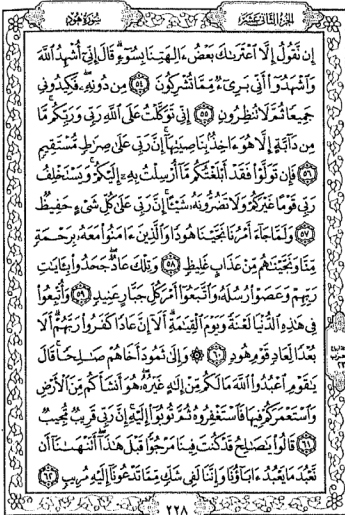 الجزء الثاني عشر
سورة هود
إِن نَّقُولُ إِلَّا ٱعْتَرَىٰكَ بَعْضُ ءَالِهَتِنَا بِسُوٓءٍ ۗ قَالَ إِنِّىٓ أُشْهِدُ ٱللَّهَ
وَٱشْهَدُوٓا۟ أَنِّى بَرِىٓءٌ مِّمَّا تُشْرِكُونَ ٥٤ مِن دُونِهِۦ ۖ فَكِيدُونِى
جَمِيعًا ثُمَّ لَا تُنظِرُونِ ٥٥ إِنِّى تَوَكَّلْتُ عَلَى ٱللَّهِ رَبِّى وَرَبِّكُم ۚ مَّا
مِن دَآبَّةٍ إِلَّا هُوَ ءَاخِذٌۢ بِنَاصِيَتِهَآ ۚ إِنَّ رَبِّى عَلَىٰ صِرَٰطٍ مُّسْتَقِيمٍ
٥٦ فَإِن تَوَلَّوْا۟ فَقَدْ أَبْلَغْتُكُم مَّآ أُرْسِلْتُ بِهِۦٓ إِلَيْكُمْ ۚ وَيَسْتَخْلِفُ
رَبِّى قَوْمًا غَيْرَكُمْ وَلَا تَضُرُّونَهُۥ شَيْـًٔا ۚ إِنَّ رَبِّى عَلَىٰ كُلِّ شَىْءٍ حَفِيظٌ
٥٧ وَلَمَّا جَآءَ أَمْرُنَا نَجَّيْنَا هُودًا وَٱلَّذِينَ ءَامَنُوا۟ مَعَهُۥ بِرَحْمَةٍ
مِّنَّا وَنَجَّيْنَٰهُم مِّنْ عَذَابٍ غَلِيظٍ ٥٨ وَتِلْكَ عَادٌ ۖ جَحَدُوا۟ بِـَٔايَٰتِ
رَبِّهِمْ وَعَصَوْا۟ رُسُلَهُۥ وَٱتَّبَعُوٓا۟ أَمْرَ كُلِّ جَبَّارٍ عَنِيدٍ ٥٩ وَأُتْبِعُوا۟
فِى هَٰذِهِ ٱلدُّنْيَا لَعْنَةً وَيَوْمَ ٱلْقِيَٰمَةِ ۗ أَلَآ إِنَّ عَادًا كَفَرُوا۟ رَبَّهُمْ ۗ أَلَا
بُعْدًا لِّعَادٍ قَوْمِ هُودٍ ٦٠ ۞ وَإِلَىٰ ثَمُودَ أَخَاهُمْ صَٰلِحًا ۚ قَالَ
يَٰقَوْمِ ٱعْبُدُوا۟ ٱللَّهَ مَا لَكُم مِّنْ إِلَٰهٍ غَيْرُهُۥ ۖ هُوَ أَنشَأَكُم مِّنَ ٱلْأَرْضِ
وَٱسْتَعْمَرَكُمْ فِيهَا فَٱسْتَغْفِرُوهُ ثُمَّ تُوبُوٓا۟ إِلَيْهِ ۚ إِنَّ رَبِّى قَرِيبٌ مُّجِيبٌ
٦١ قَالُوا۟ يَٰصَٰلِحُ قَدْ كُنتَ فِينَا مَرْجُوًّا قَبْلَ هَٰذَآ ۖ أَتَنْهَىٰنَآ أَن
نَّعْبُدَ مَا يَعْبُدُ ءَابَآؤُنَا وَإِنَّنَا لَفِى شَكٍّ مِّمَّا تَدْعُونَآ إِلَيْهِ مُرِيبٍ ٦٢
٢٢٨